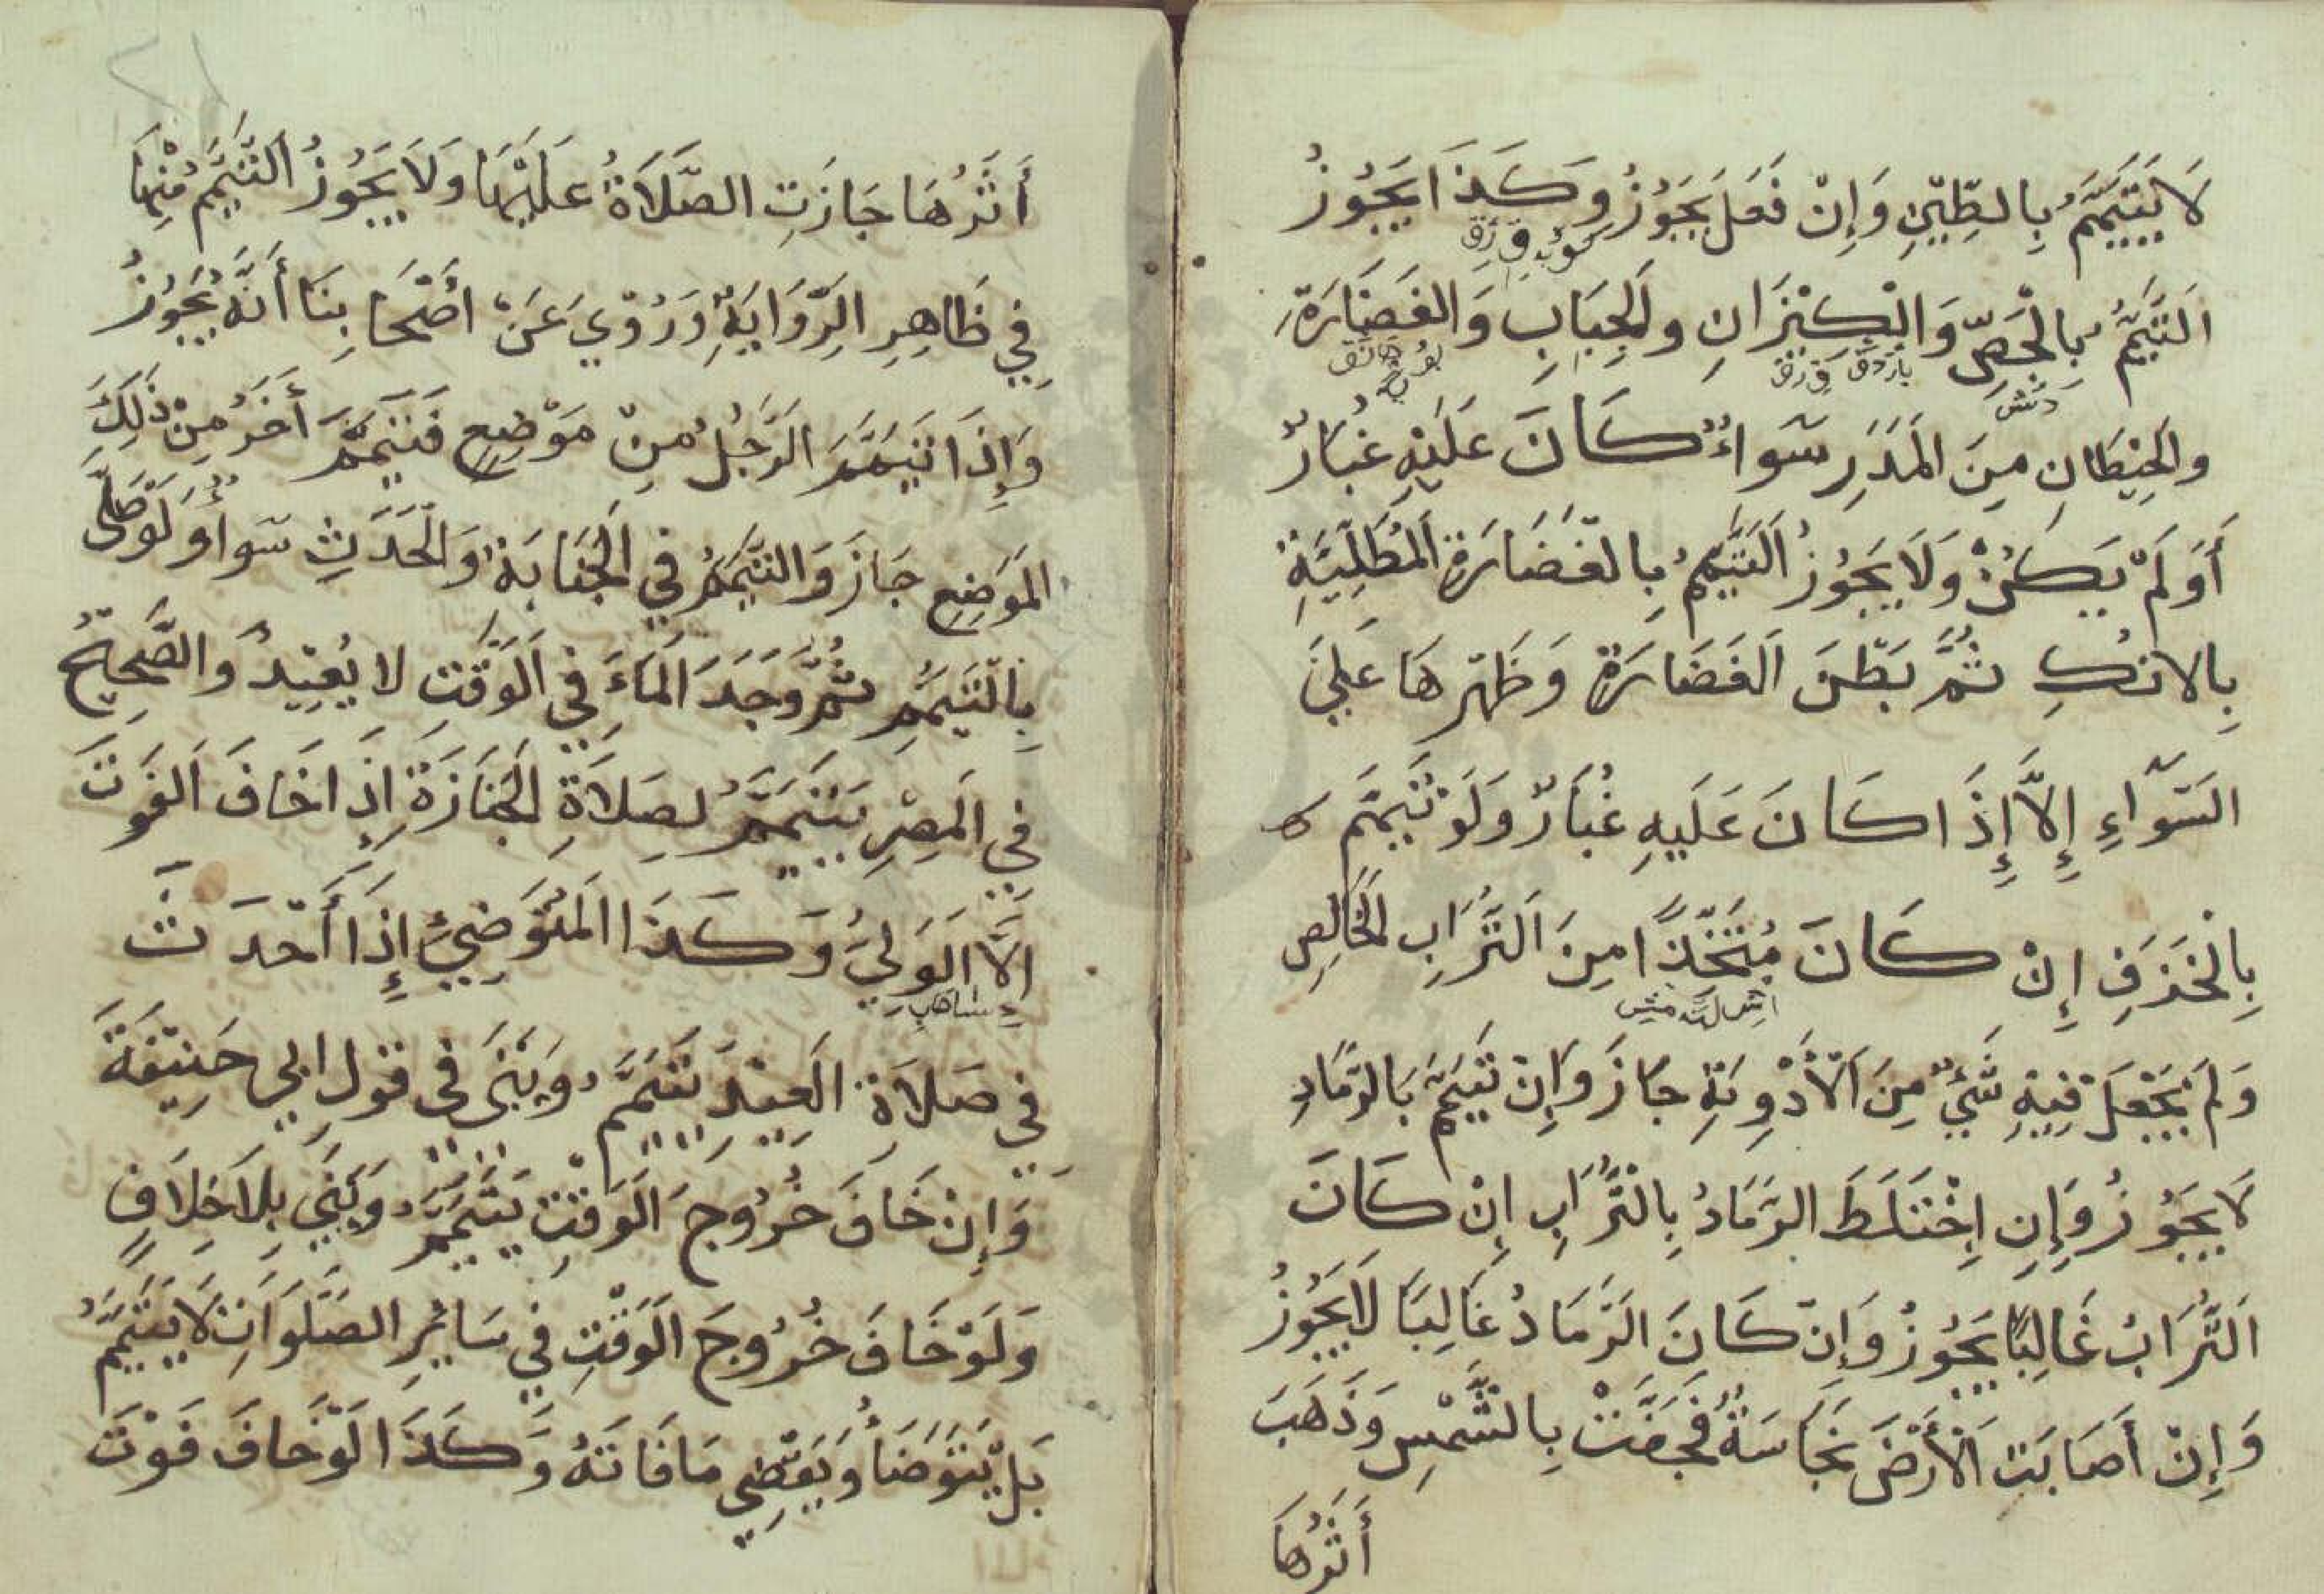 لَا يَتَيَمَّمُ بِالطِّيْنِ وَإِنْ فَعَلَ يَجُوْزُ وَكَذَا يَجُوْزُ
اَلتَّيَمُّمُ بِالْجَصِّ وَالْكِيْزَانِ وَالْجِبَابِ وَالْغَضَارَةِ
وَالْحِيْطَانِ مِنَ الْمَدَرِ سَوَاءٌ كَانَ عَلَيْهِ غُبَارٌ
أَوَ لَمْ يَكُنْ وَلَا يَجُوْزُ اَلتَّيَمُّمُ بِالْغَضَارَةِ اَلْمُطَلِيَّةِ
بِالانكِ ثُمَّ بَطْنَ اَلْغَضَارَةِ وَظَهْرهَا عَلَىَ
السَّوَآءِ إِلَّا إِذَا كَانَ عَلَيهِ غُبَارٌ وَلَوْ تَيَمَّمَ
بِالْخَزَفِ إِنْ كَانَ مُتَّخَذًا مِنَ اَلتُّرَابِ الْخَالِصِ
وَلَمْ يَجْعَلْ فِيْهِ شَيْءٌ مِنَ اَلْأَدْوِيَةِ جَازَ وَاِنْ تَيَمَّمَ بَالرَّمَادِ
لَا يَجُوْزُ وَإِنِ اِخْتَلَطَ الرَّمَادُ بِالتُّرَابِ إِنْ كَانَ
اَلتُّرَابُ غَالِبًا يَجُوْزُ وَإِنْ كَانَ الرَّمَادُ غَالِبًا لَا يَجُوْزُ
وَإِنْ أَصَابَتِ اَلْأَرْضَ نَجَاسَةٌ فَجَفَّتْ بِالشَّمْسِ وَذَهَبَ
أَثَرُهَا
أَثَرُهَا جَازَتِ الصَّلَاةُ عَلَيْهَا وَلَا يَجُوْزُ التَّيَمُّمُ مِنْهَا
فِي ظَاهِرِ الرِّوَايَةِ وَرُوْيَ عَنْ اَصْحَابِنَا أَنَّهُ يَجُوْزُ
وَإِذَا تَيَمَّمَ الرَّجُلُ مِنْ مَوْضِعٍ فَتَيَمَّمَ أَخَرُ مِنْ ذَلِكَ
الْمَوْضِعِ جَازَ وَالتَّيَمُّمُ فِي الْجَنَابَةِ وَالْحَدَثِ سَوَاءٌ وَلَوْ صَلَّى
بِالتَّيَمُّمِ ثُمَّ وَجَدَ اَلْمَاءَ فِي اَلْوَقْتِ لا يُعِيْدُ وَالصَّحِيْحُ
فِي الْمِصْرِ يَتَيَمَّمُ لِصَلَاةِ الْجَنَازَةِ إِذَا خَافَ اَلْفَوْتَ
اِلَّا اَلْوَلِيُّ وَكَذَا اَلْمُتَوَضِيُّ إِذَا أَحْدَثَ
فِي صَلَاةِ الْعِيْدِ يَتَيَمَّمُ وَيَبْنِى فِى قَوْلِ ابى حَنِيْفَةَ
وَإِنْ خَافَ خُرُوْجَ الْوَقْتِ يَتَيَمَّمُ وَيَبْنِي بِلَا خِلَافٍ
وَلَوْ خَافَ خُرُوجَ اَلْوَقْتِ فِي سَائِرِ الصَّلَوَاتِ لَا يَتَيَمَّمُ
بَلْ يَتَوَضَأُ وَيَقْضِي مَا فَاتَهُ وَكَذَا لَوْ خَافَ فَوْتَ